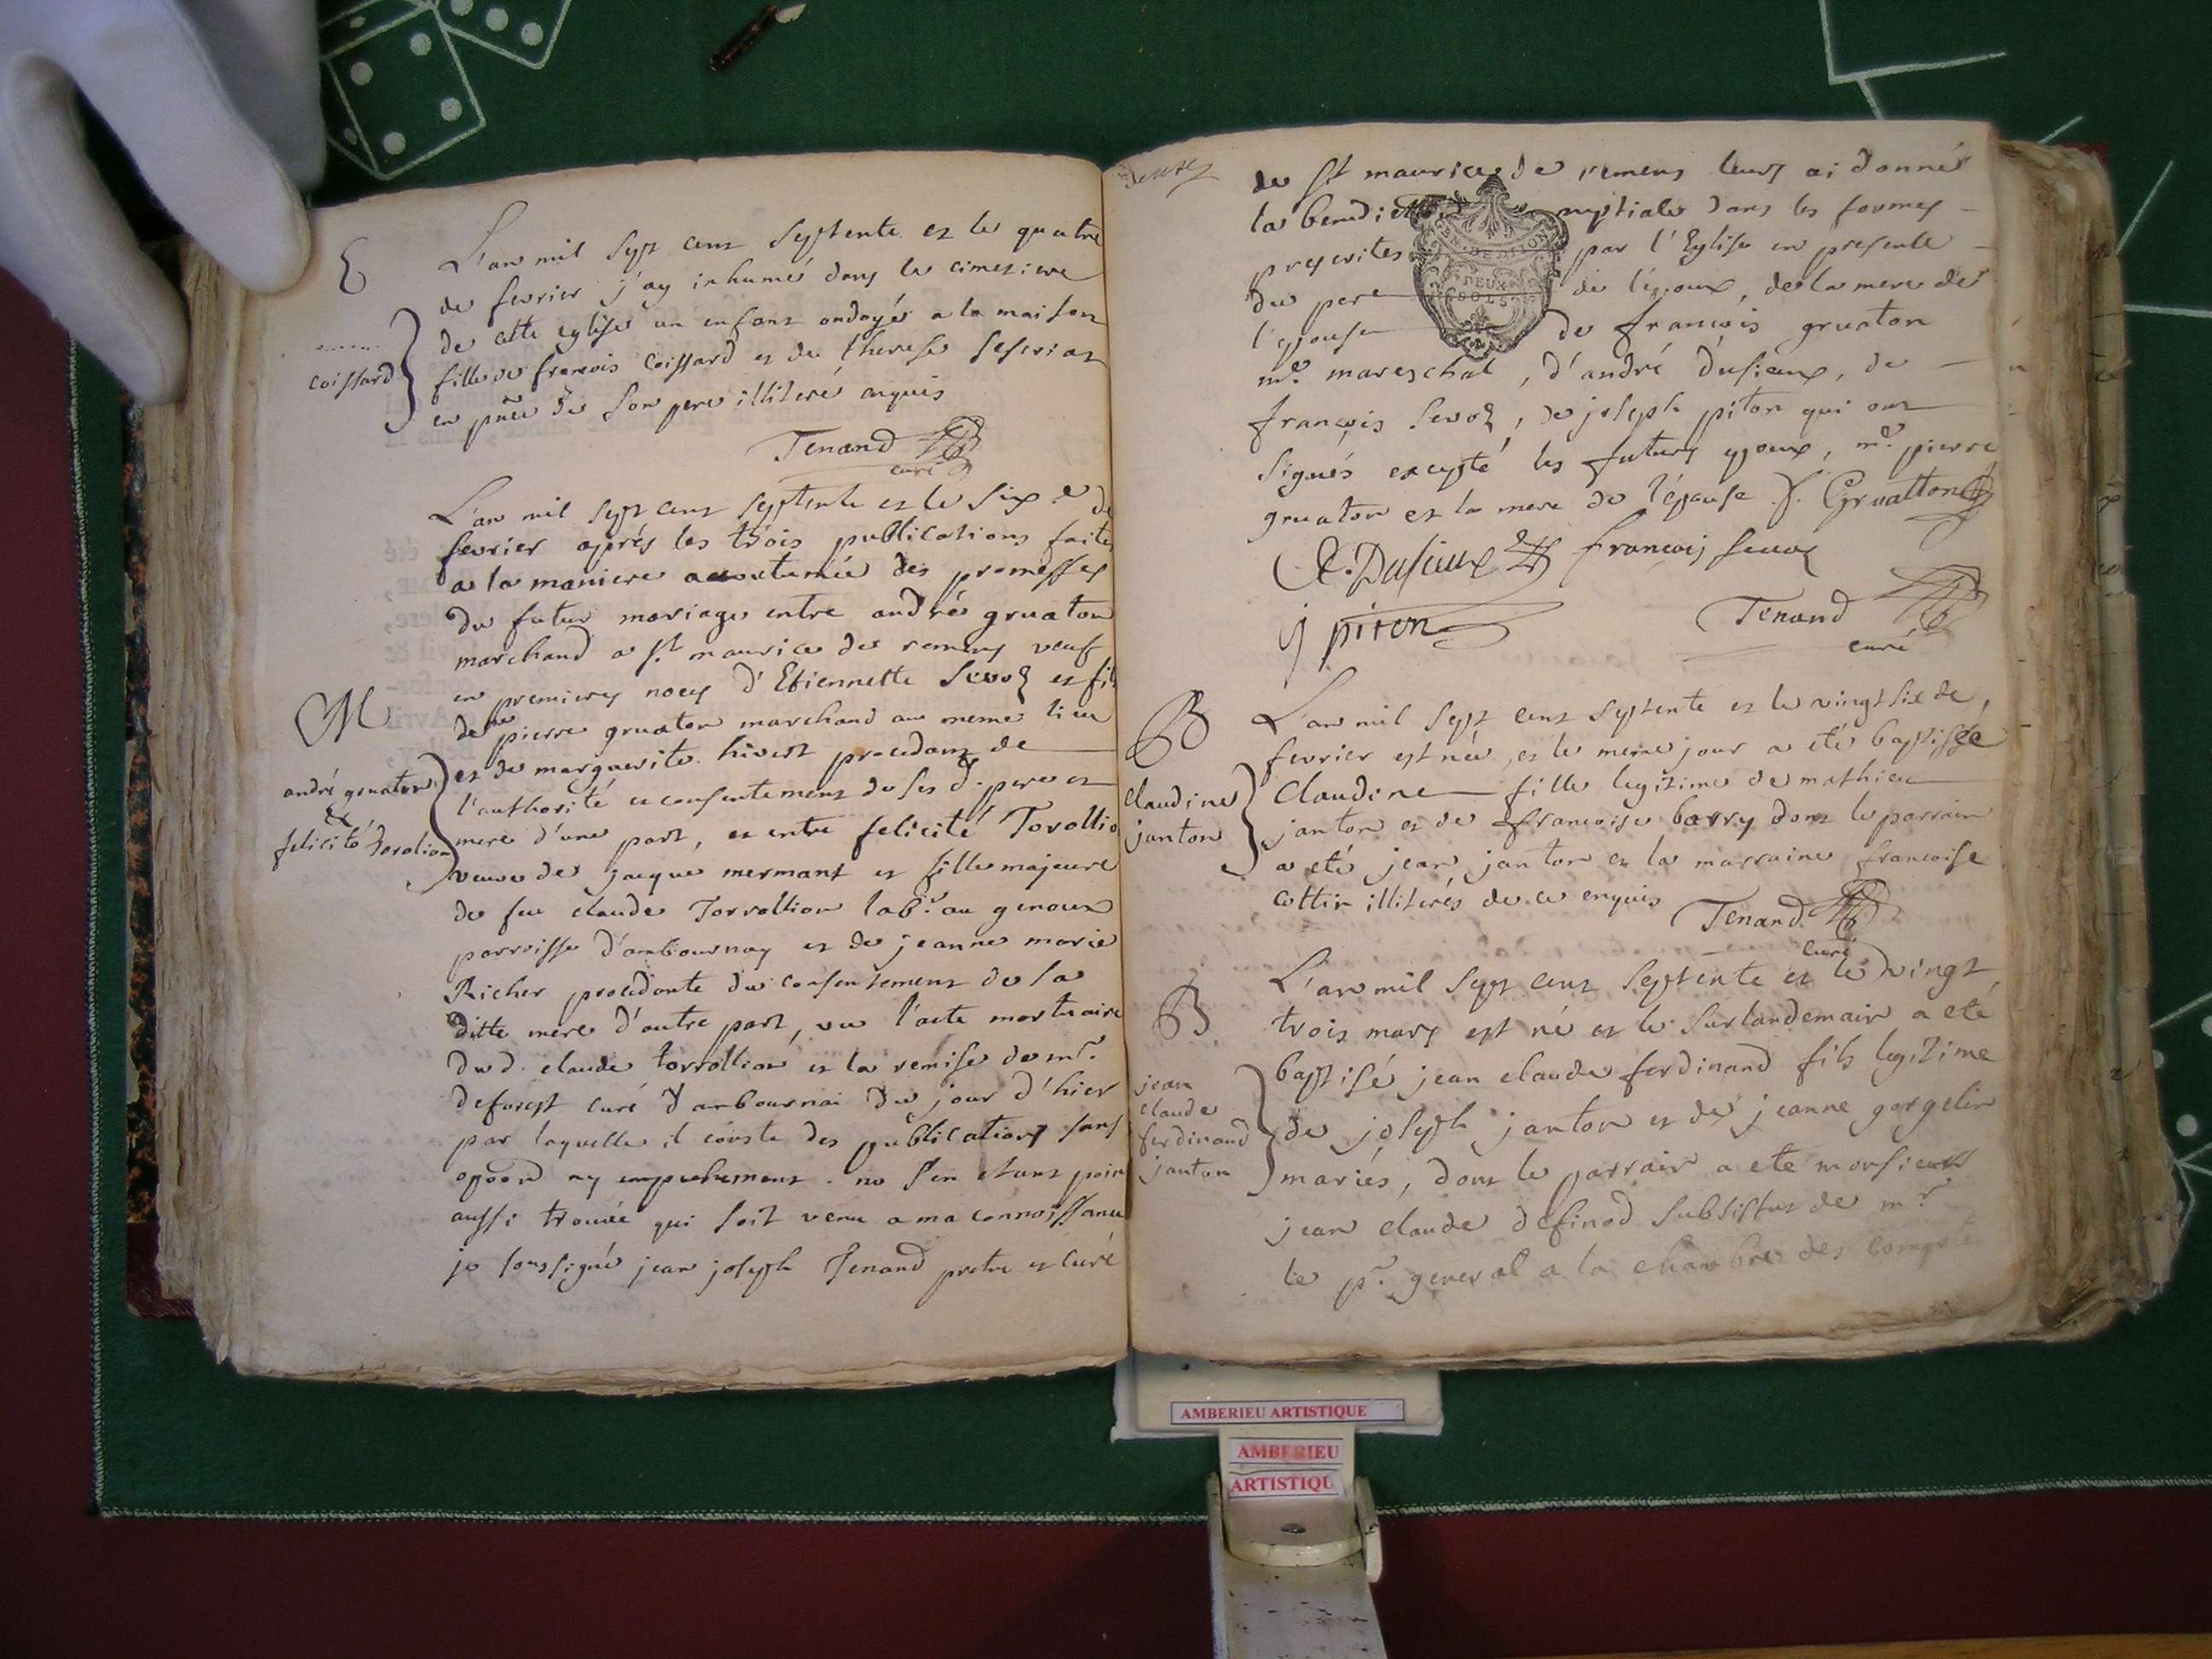 E
L'an mil sept cent septente et le quatre
de fevrier j'ay inhumé dans le cimetiere
de cette eglise un enfant ondoyé a la maison
fille de francois Coissard et de therese
en pñce de son pere illiteré enquis
coissard
Tenand
curé
L'an mil sept cent septente et le six e de
fevrier aprés les trois publications faites
a la maniere accoutumée des promesses
du futur mariage entre andré gruaton
marchand a st maurice de remens veuf
en premieres noces d'Etiennette Sevoz et fils
de me pierre gruaton marchand au meme lieu
et de marguerite hivert procedant de
l'authorité et consentement de ses d. pere et
mere d'une part, et entre felicité Torollio
veuve de jacque mermant et fille majeure
de feu claude Torrollion labr. au genoux
parroisse d'ambournay et de jeanne marie
Richer procedante du consentement de sa
ditte mere d'autre part, vu l'acte mortuaire
dud. claude torrollion et la remise de mr.
deforest curé d'ambournai du jour d'hier
par laquelle il conste des publications sans
opōon ny empechement. ne s'en etant point
aussi trouvée qui soit venu a ma connoissance
je soussigné jean joseph Tenand pretre et curé
M
andré gruaton
&
felicité torolion
de st maurice de remens leurs ai donné
la benediction nuptiale dans les formes
prescrites par l'Eglise en presence
du pere de l'époux, de la mere de
l'epouse de françois gruaton
me. mareschal, d'andré dusieux, de
françois Sevoz, de joseph piton qui ont
signés excepté les futurs epoux, me. pierre
gruaton et la mere de l'épouse f. Gruatton
A. Dusieux françois sevoz
j piton
Tenand
curé
B
L'an mil sept cent septente et le vingt six de
fevrier est née, et le meme jour a eté baptisée
Claudine fille legitime de mathieu
janton et de francoise barry dont le parrain
a eté jean janton et la marraine francoise
cottin illiterés de ce enquis
claudine
janton
Tenand
curé
B
L'an mil sept cent septente et le vingt
trois mars est né et le surlandemain a eté
baptisé jean claude ferdinand fils legitime
de joseph janton et de jeanne gorgelin
mariés, dont le parrain a ete monsieur
jean claude definod substitut de mr
le pr. general a la chambre des comptes
jean
claude
ferdinand
janton
GEN. DE DIJON
DEUX
SOLS
AMBERIEU ARTISTIQUE
AMBERIEU
ARTISTIQU